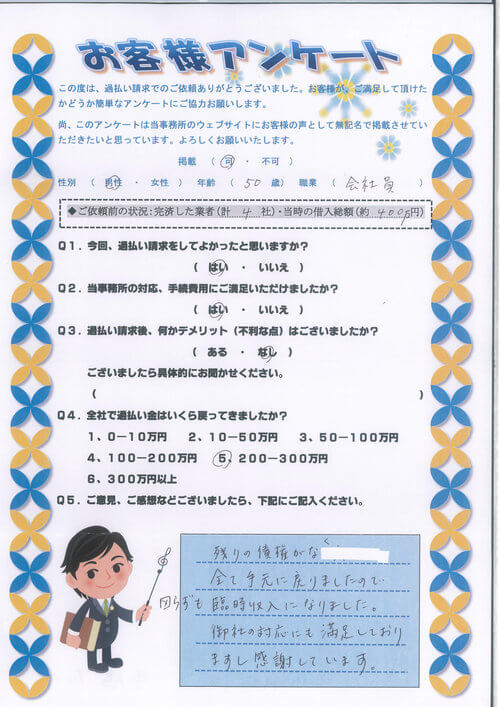 お客様アンケート
この度は、過払い請求でのご依頼ありがとうございました。お客様が、ご満足して頂けた
かどうか簡単なアンケートにご協力お願いします。
尚、このアンケートは当事務所のウェブサイトにお客様の声として無記名で掲載させてい
ただきたいと思っています。よろしくお願いいたします。
掲載 （ 可 ・ 不可 ）
性別 （ 男性 ・ 女性 ） 年齢 （ 50 歳） 職業 （ 会社員 ）
◆ご依頼前の状況：完済した業者（計 4 社）・当時の借入総額（約 400万円）
Q1．今回、過払い請求をしてよかったと思いますか？
（ はい ・ いいえ ）
Q2．当事務所の対応、手続費用にご満足いただけましたか？
（ はい ・ いいえ ）
Q3．過払い請求後、何かデメリット（不利な点）はございましたか？
（ ある ・ なし ）
ございましたら具体的にお聞かせください。
（ ）
Q4．全社で過払い金はいくら戻ってきましたか？
1、0－10万円 2、10－50万円 3、50－100万円
4、100－200万円 5、200－300万円
6、300万円以上
Q5．ご意見、ご感想などございましたら、下記にご記入ください。
残りの債権がなく、
全て手元に戻りましたので
図らずも臨時収入になりました。
御社の対応にも満足しており
ますし感謝しています。